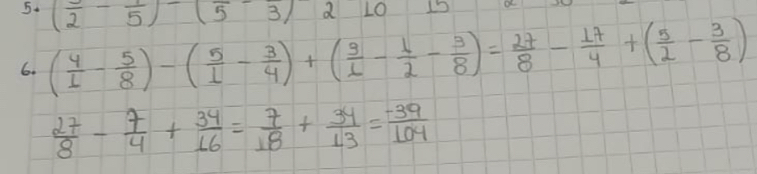 5. (3/2 - 1/5) - (/5 - /3) 2 10 15
6. (4/1 - 5/8) - (5/1 - 3/4) + (3/1 - 1/2 - 3/8) = 27/8 - 17/4 + (5/2 - 3/8)
27/8 - 7/4 + 34/16 = 7/18 + 34/13 = -39/104